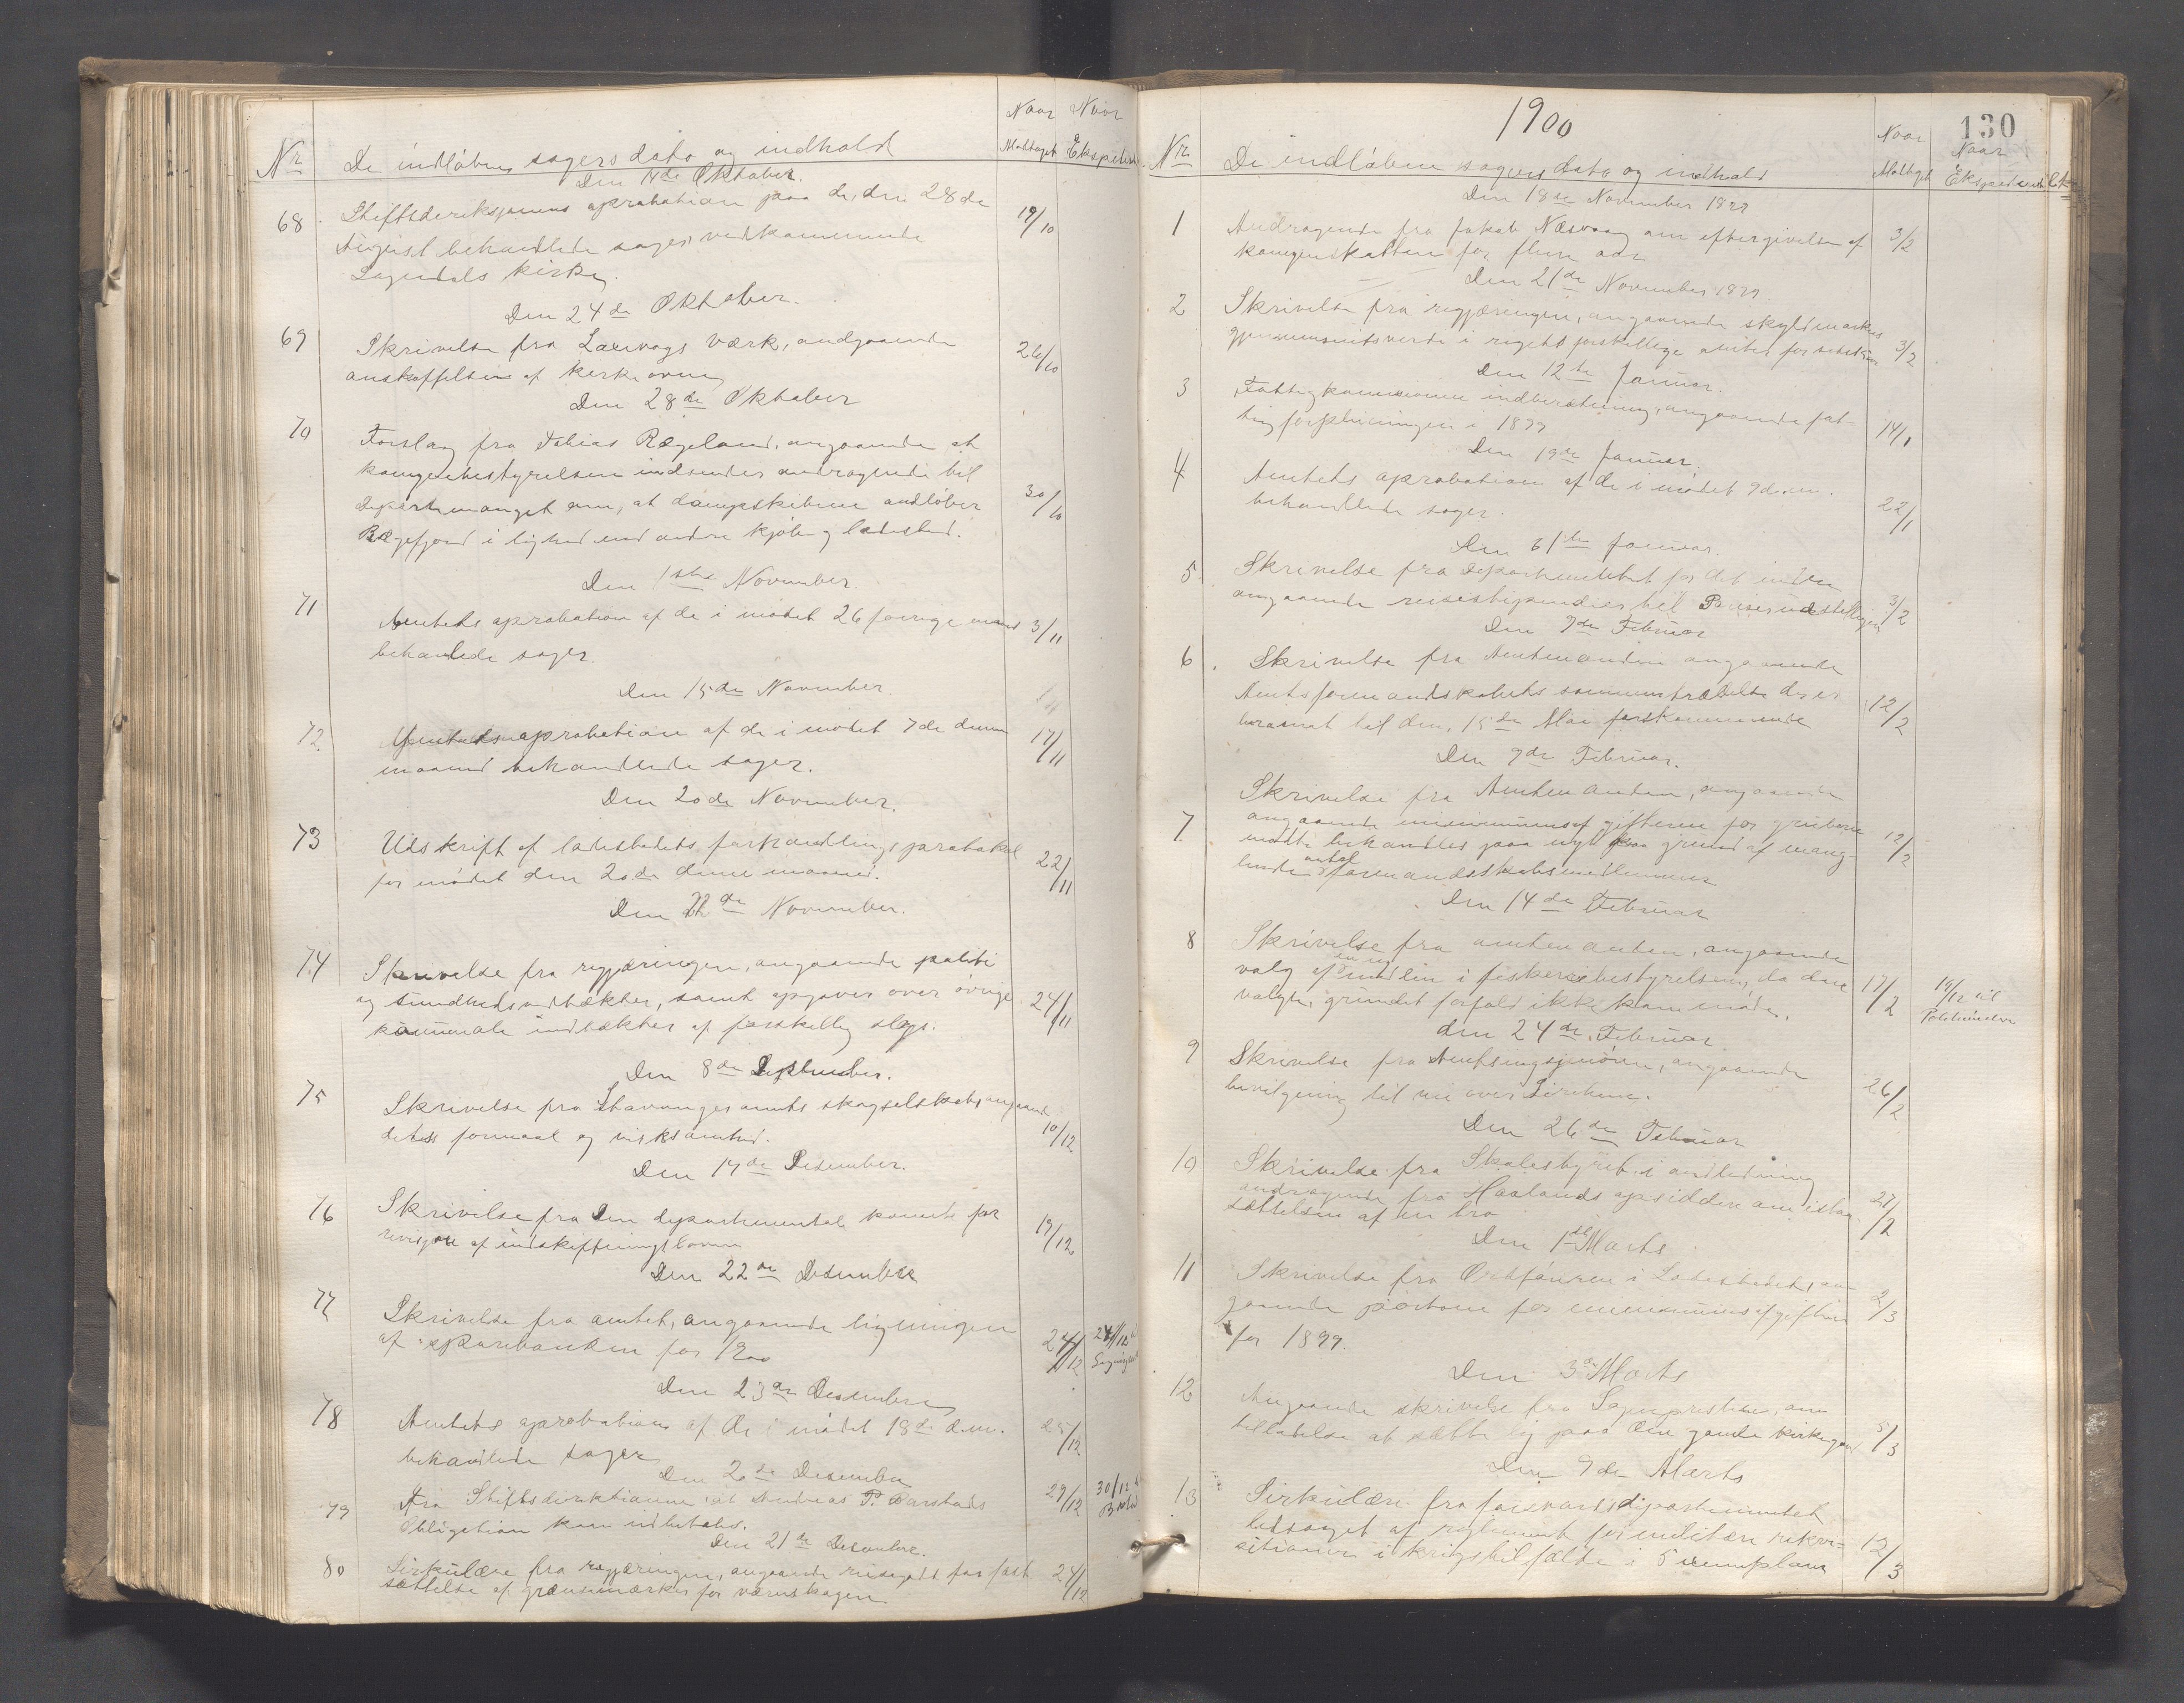 Nr De indløbne sagers dato og indhold Naar Modtaget Naar Ekspederet
Den Oktober.
68. Stiftsdireksjonens aprobation paa de, den 28de 19/10
August behandlede sager vedkommende
Sogndals kirke.
Den 24de Oktober.
69 Skrivelse fra Laurvogs Værk, andgaaende 26/10
anskaffelsen af kirkeovne
Den 28de Oktober
70 Forslag fra Tobias Rægeland, angaaende at
kommunebestyrelsen indsender andragende til
departemanget om, at dampskibene andløber 30/10
Rægefjord i lighed med andre kjøb og ladested.
Den 1ste November.
71 Amtets aprobation af de i mødet 26 forrige maan 3/11
behanlede sager.
Den 15de November.
72. Amtets aprobation af de i mødet 7de denne 17/11
maaned behandlede sager.
Den 20de November.
73 Udskrift af ladestedets forhandlingsprotokol 22/11
for mødet den 20de denne maaned.
Den 22de November.
74 Skrivelse fra regjæringen, angaaende politi
og sundhedsvedtækter, samt opgaver over øvrige 24/11
kommunale indtækter af forskellig slags.
Den 8de
75 Skrivelse fra Stavanger amts skogselskab, angaaende
detess formaal og virksomhed. 10/12
Den Desember.
76 Skrivelse fra den departementale komite for 19/12
revisjon af udskiftningsloven
Den 22de Desember
77 Skrivelse fra amtet, angaaende ligningen 24/12 24/12
af sparebanken for 1900
Den 23de Desember
78 Amtets aprobation af de i mødet 18de d.m. 25/12
behandlede sager
Den 2 de Desember
79 Fra Stiftsdirektionen at Andreas P. Aarstads 29/12 30/12
Obligation kan udbetales.
Den 21de Desember.
80 Sirkulære fra regjæringen, angaaende reisegodt for fast 24/12
sættelse af grænsemærker for værnskogen
1900
130
Nr De indløbne sagers dato og indhold Naar Modtaget Naar Ekspederet
Den 18de November 1899
1 Andragende fra Jakob Næsvaag om eftergivelse af 3/2
komuneskatten for flere aar
Den 21de November 1899.
2 Skrivelse fra regjæringen, angaaende skyldmarkes 3/2
gjennemsnitsverdi i rigets forskellige amter for
Den 12te Januar.
3 Fattigkommisionens indberetning, angaaende fat- 14/1
tigforpleiningen i 1899
Den 19de Januar.
4 Amtets aprobation af de i mødet 9 d.m. 22/1
behandlede sager.
Den 31te Januar.
5. Skrivelse fra departementet for det indre 3/2
angaaende reisestipendier til Pariserudstillingen
Den 7de Februar
6. Skrivelse fra Amtmanden angaaende
Amtsformandskabets sammentrædelse der er 12/2
berammet til den, 15de Mai førstkommende
Den 9de Februar.
Skrivelse fra Amtmanden, angaaende
7. angaaende minimumsafgifterne for gruberne 12/2
maatte behandles paa nyt paa grund af mang-
lende antal formandsskabsmedlemmer
Den 14de Februar
8 Skrivelse fra amtmanden, angaaende
valg af en ny medlem i fiskeribestyrelsen, da den 17/2
valgte grundet forfald ikke kan møde.
den 24de Februar.
9 Skrivelse fra Amtsingeniøren, angaaende 26/2
bevilgning til vei over Lindheim.
Den 26de Februar
10 Skrivelse fra Skolestyret, i andledning
andragende fra Haalands opsiddere om istan- 27/2
sættelsen af en bro
Den 1ste Marts
11 Skrivelse fra Ordføreren i Ladestedet, an- 2/3
gaaende portoen for minimumsafgiften
for 1899.
Den 3de Marts
12 Angaaende skrivelse fra Sognepresten, om 5/3
tilladelse at sætte lig paa den gamle kirkegaard
Den 9de Marts
13 Sirkulære fra forsvarsdipartementet
ledsaget af reglement for militære rekvi- 12/3
sitioner i krigstilfælde i 5 exemplarer